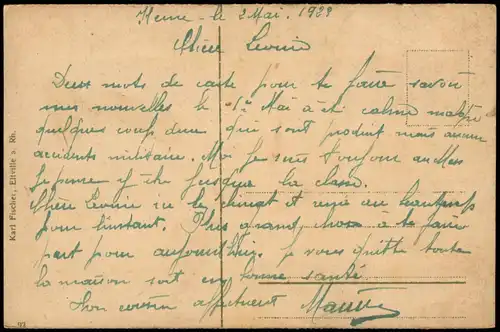 le 2 Mai. 1929
Chère Leonie
Deux mots de carte pour te faire savoir
mes nouvelles le 1er Mai à été calme malgre
quelques coup dure qui sont produit mais aucun
accidents militaire. Moi je suis toujour au Mess
Je pense y être jusque la classe.
Chère Leonie ici le climat et
pour l'instant. Plus grand chose à te faire
part pour aujourd'hui. Je vous quitte toute
la maison soit en bonne santé
Ton cousin affectueux
Karl Fischer, Eltville a. Rh.